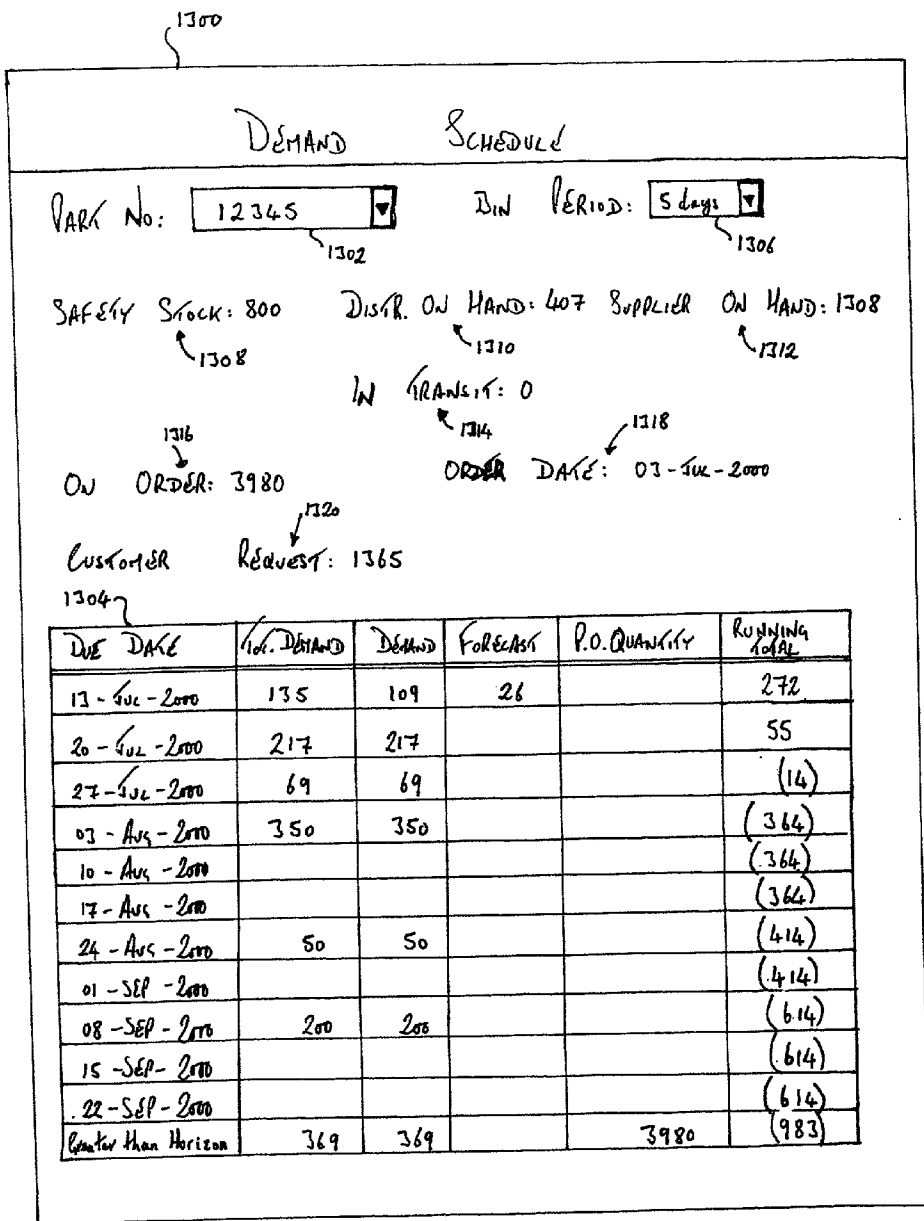 1300
DEMAND SCHEDULE
PART No: 12345 BIN PERIOD: 5 days
1302 1306
SAFETY STOCK: 800 DISTR. ON HAND: 407 SUPPLIER ON HAND: 1308
1308 1310 1312
IN TRANSIT: 0
1316 1314 1318
ON ORDER: 3980 ORDER DATE: 03-JUL-2000
1320
CUSTOMER REQUEST: 1365
1304
DUE DATE TOT. DEMAND DEMAND FORECAST P.O. QUANTITY RUNNING TOTAL
13-JUL-2000 135 109 26 272
20-JUL-2000 217 217 55
27-JUL-2000 69 69 (14)
03-AUG-2000 350 350 (364)
10-AUG-2000 (364)
17-AUG-2000 (364)
24-AUG-2000 50 50 (414)
01-SEP-2000 (414)
08-SEP-2000 200 200 (614)
15-SEP-2000 (614)
22-SEP-2000 (614)
Greater than Horizon 369 369 3980 (983)